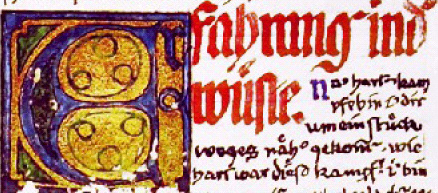 Erfahrung in d
wüste.
Nach hart kam
pfe bin i dir
um ein stück
weges näh gekom. wie
hart war dies kampf! i bin